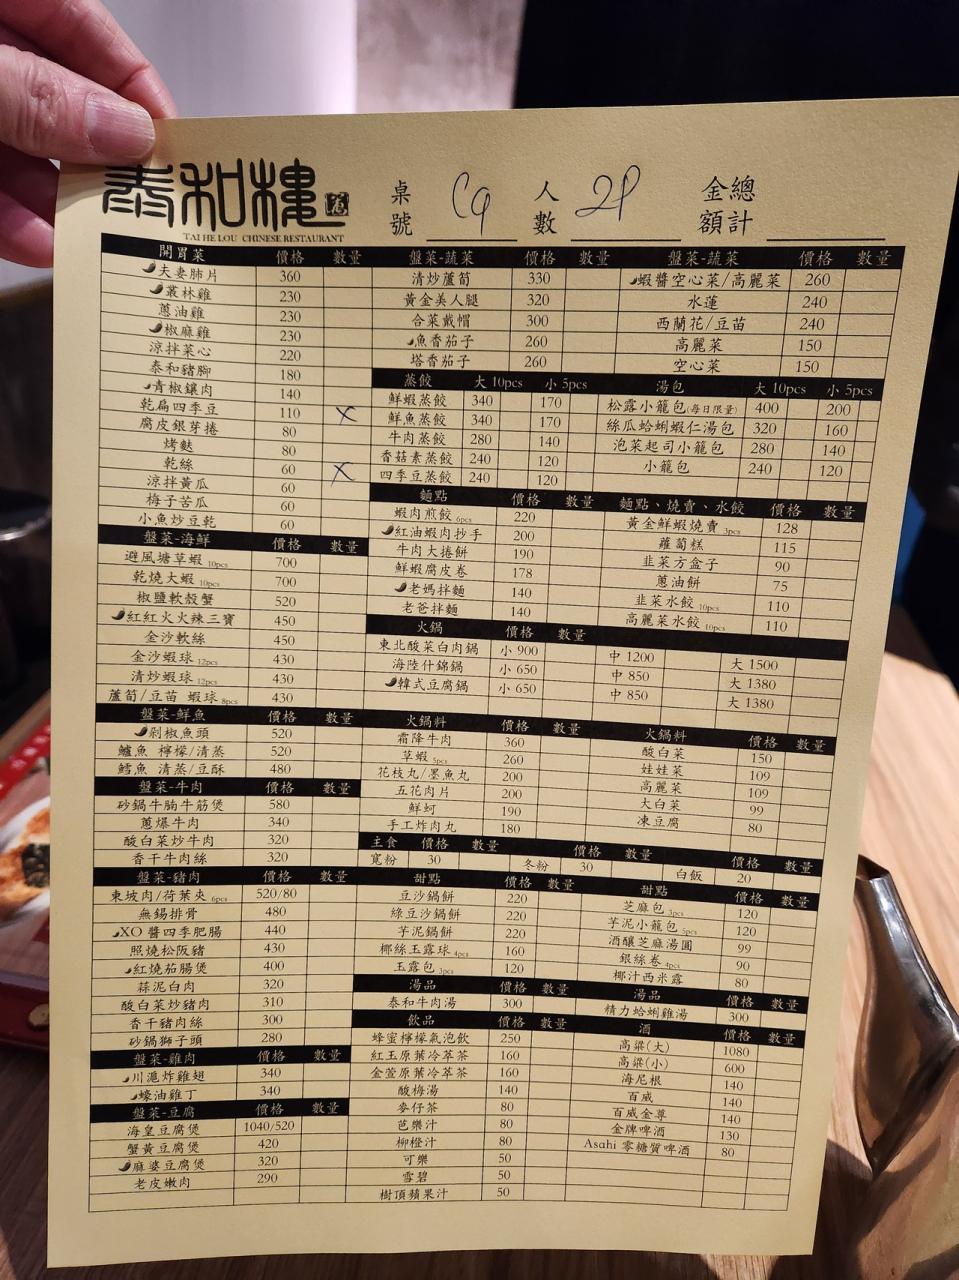 泰和樓
TAI HE LOU CHINESE RESTAURANT
桌號 C9 人數 2P 金額 總計
開胃菜 價格 數量
夫妻肺片 360
叢林雞 230
蔥油雞 230
椒麻雞 230
涼拌菜心 220
泰和豬腳 180
青椒鑲肉 140
乾扁四季豆 110 X
腐皮銀芽捲 80
烤麩 80
乾絲 60 X
涼拌黃瓜 60
梅子苦瓜 60
小魚炒豆乾 60
盤菜-海鮮 價格 數量
避風塘草蝦 10pcs 700
乾燒大蝦 10pcs 700
椒鹽軟殼蟹 520
紅紅火火辣三寶 450
金沙軟絲 450
金沙蝦球 12pcs 430
清炒蝦球 12pcs 430
蘆筍/豆苗 蝦球 8pcs 430
盤菜-鮮魚 價格 數量
剁椒魚頭 520
鱸魚 檸檬/清蒸 520
鱈魚 清蒸/豆酥 480
盤菜-牛肉 價格 數量
砂鍋牛腩牛筋煲 580
蔥爆牛肉 340
酸白菜炒牛肉 320
香干牛肉絲 320
盤菜-豬肉 價格 數量
東坡肉/荷葉夾 6pcs 520/80
無錫排骨 480
XO醬四季肥腸 440
照燒松阪豬 430
紅燒茄腸煲 400
蒜泥白肉 320
酸白菜炒豬肉 310
香干豬肉絲 300
砂鍋獅子頭 280
盤菜-雞肉 價格 數量
川滬炸雞翅 340
蠔油雞丁 340
盤菜-豆腐 價格 數量
海皇豆腐煲 1040/520
蟹黃豆腐煲 420
麻婆豆腐煲 320
老皮嫩肉 290
盤菜-蔬菜 價格 數量
清炒蘆筍 330
黃金美人腿 320
合菜戴帽 300
魚香茄子 260
塔香茄子 260
盤菜-蔬菜 價格 數量
蝦醬空心菜/高麗菜 260
水蓮 240
西蘭花/豆苗 240
高麗菜 150
空心菜 150
蒸餃 大 10pcs 小 5pcs
鮮蝦蒸餃 340 170
鮮魚蒸餃 340 170
牛肉蒸餃 280 140
香菇素蒸餃 240 120
四季豆蒸餃 240 120
湯包 大 10pcs 小 5pcs
松露小籠包(每日限量) 400 200
絲瓜蛤蜊蝦仁湯包 320 160
泡菜起司小籠包 280 140
小籠包 240 120
麵點 價格 數量
蝦肉煎餃 6pcs 220
紅油蝦肉抄手 200
牛肉大捲餅 190
鮮蝦腐皮卷 178
老媽拌麵 140
老爸拌麵 140
麵點、燒賣、水餃 價格 數量
黃金鮮蝦燒賣 3pcs 128
蘿蔔糕 115
韭菜方盒子 90
蔥油餅 75
韭菜水餃 10pcs 110
高麗菜水餃 10pcs 110
火鍋 價格 數量
東北酸菜白肉鍋 小 900 中 1200 大 1500
海陸什錦鍋 小 650 中 850 大 1380
韓式豆腐鍋 小 650 中 850 大 1380
火鍋料 價格 數量
霜降牛肉 360
草蝦 5pcs 260
花枝丸/墨魚丸 200
五花肉片 200
鮮蚵 190
手工炸肉丸 180
火鍋料 價格 數量
酸白菜 150
娃娃菜 109
高麗菜 109
大白菜 99
凍豆腐 80
主食 價格 數量 價格 數量 價格 數量
寬粉 30 冬粉 30 白飯 20
甜點 價格 數量
豆沙鍋餅 220
綠豆沙鍋餅 220
芋泥鍋餅 220
椰絲玉露球 4pcs 160
玉露包 3pcs 120
甜點 價格 數量
芝麻包 3pcs 120
芋泥小籠包 5pcs 120
酒釀芝麻湯圓 99
銀絲卷 4pcs 90
椰汁西米露 80
湯品 價格 數量
泰和牛肉湯 300
湯品 價格 數量
精力蛤蜊雞湯 300
飲品 價格 數量
蜂蜜檸檬氣泡飲 250
紅玉原葉冷萃茶 160
金萱原葉冷萃茶 160
酸梅湯 140
麥仔茶 80
芭樂汁 80
柳橙汁 80
可樂 50
雪碧 50
樹頂蘋果汁 50
酒 價格 數量
高粱(大) 1080
高粱(小) 600
海尼根 140
百威 140
百威金尊 140
金牌啤酒 130
Asahi 零糖質啤酒 80